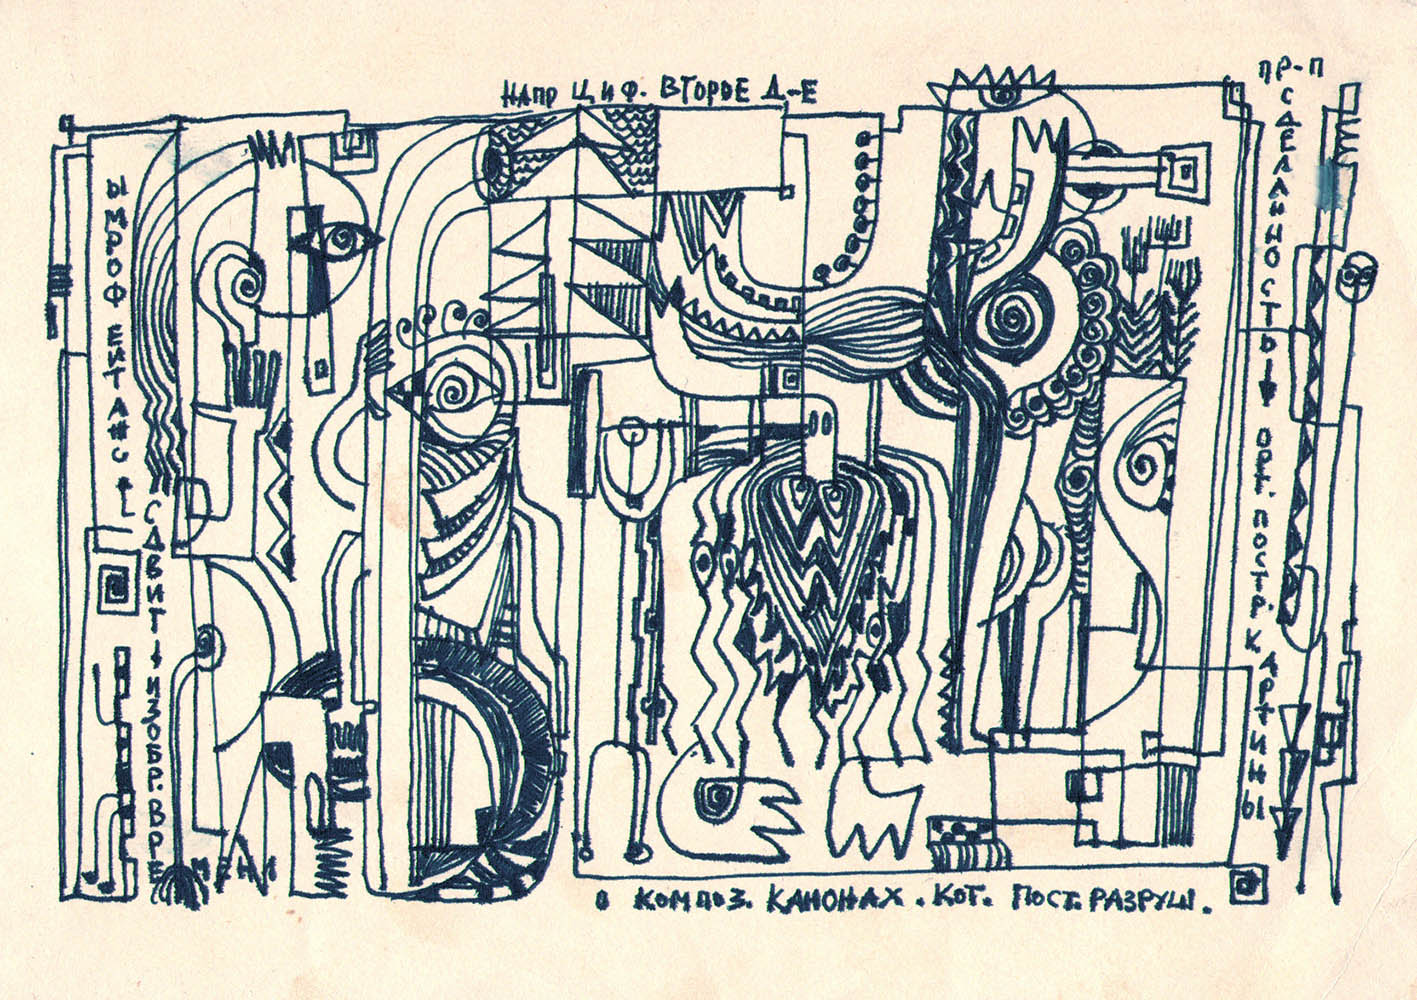 НАПР ЦИФ. ВТОРОЕ Д-Е
ПР-П
СДЕЛАННОСТЬ
ОРГ. ПОСТР. КАРТИНЫ
ЫМРОФ
СДВИГ И ИЗОБР. ВРЕМЕНИ
О КОМПОЗ. КАНОНАХ. КОТ. ПОСТ. РАЗРУШ.